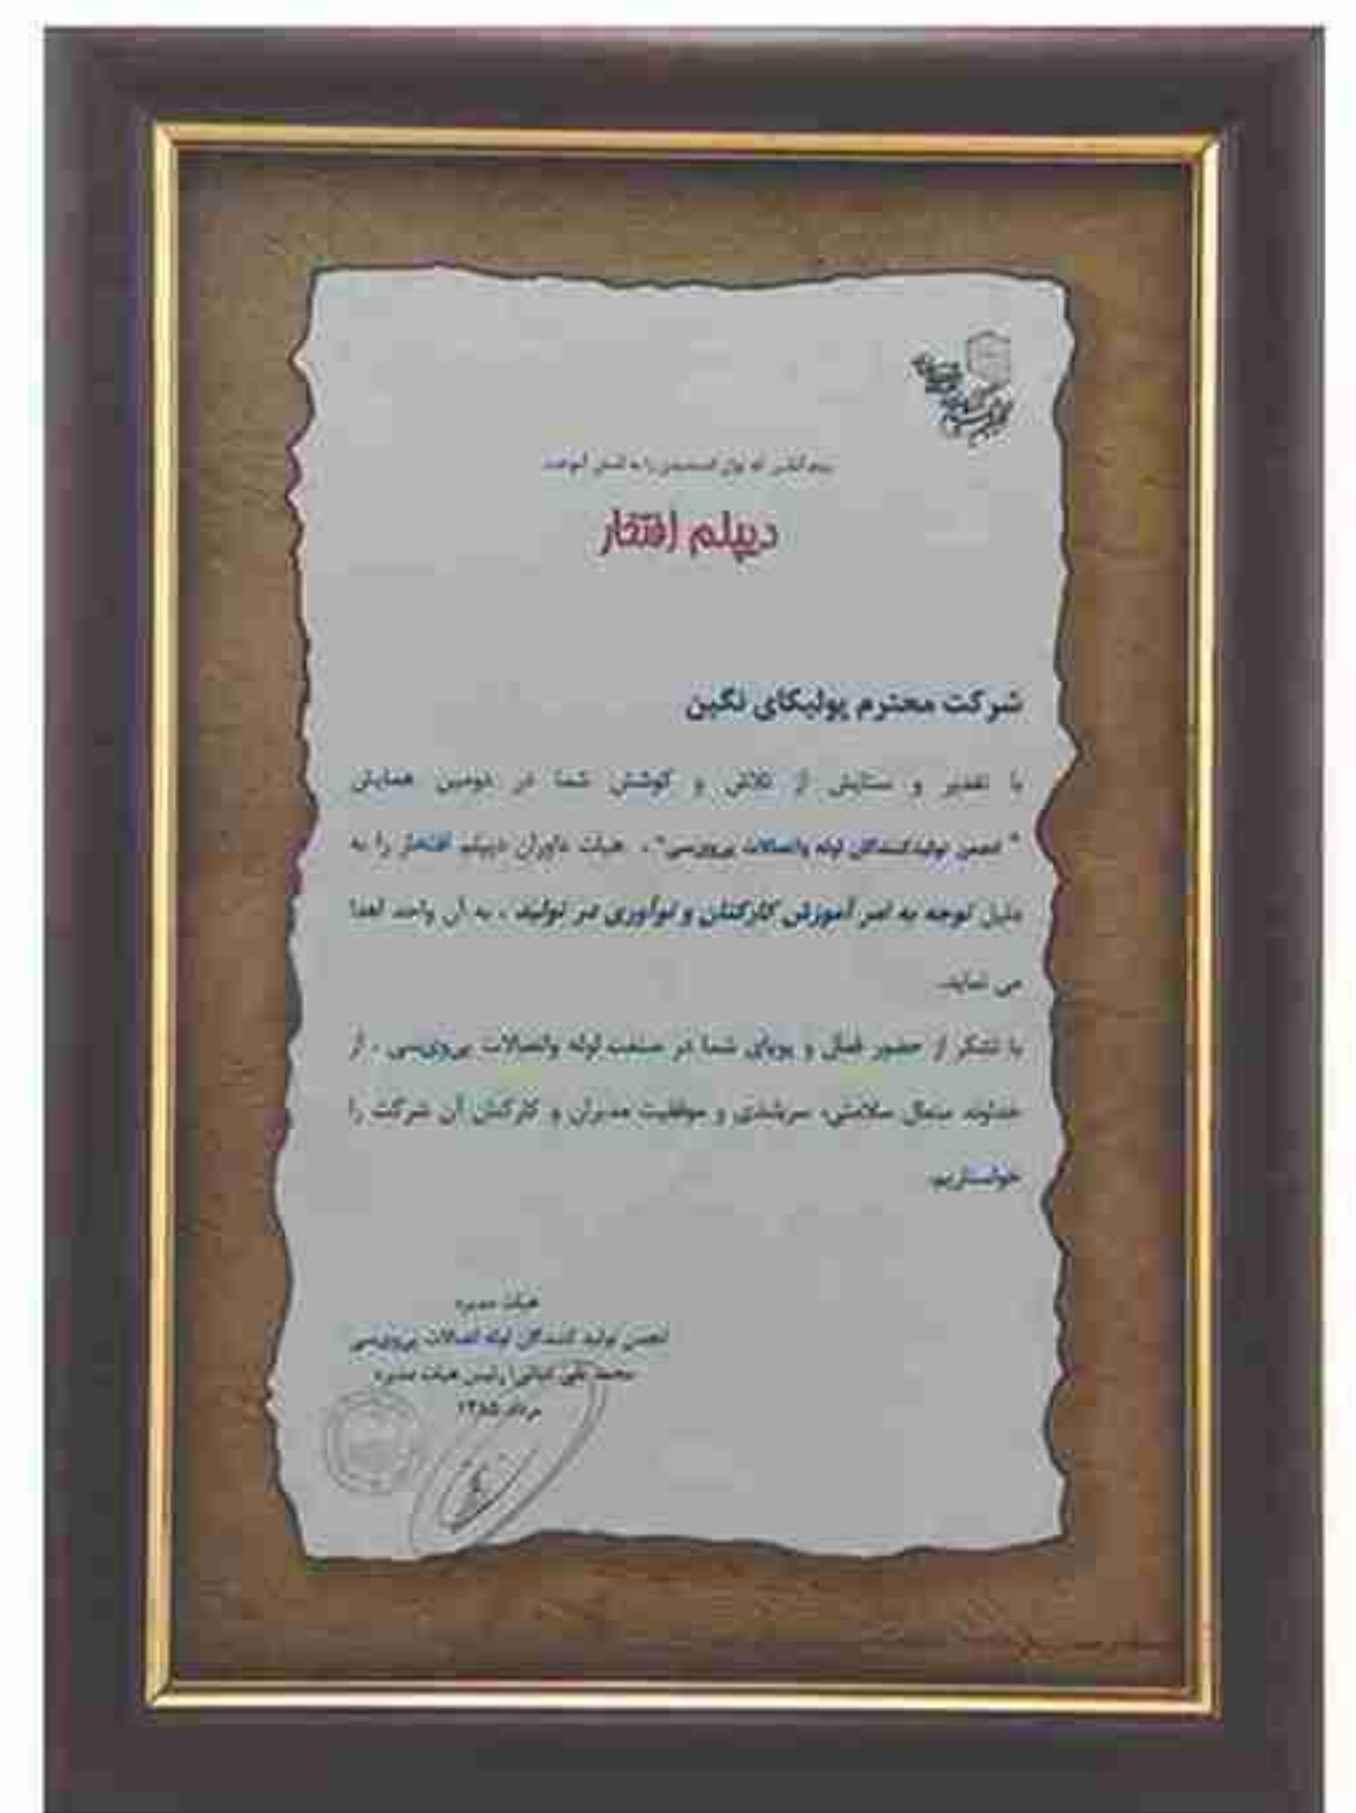 بنام آنکس که توان اندیشیدن را به انسان آموخت
دیپلم افتخار
شرکت محترم پولیکای نگین
با تقدیر و ستایش از تلاش و کوشش شما در دومین همایش
" انجمن تولیدکنندگان لوله واتصالات پی‌وی‌سی" ، هیات داوران دیپلم افتخار را به
دلیل توجه به امر آموزش کارکنان و نوآوری در تولید ، به آن واحد اهدا
می نماید.
با تشکر از حضور فعال و پویای شما در صنعت لوله واتصالات پی‌وی‌سی ، از
خداوند متعال سلامتی، سربلندی و موفقیت مدیران و کارکنان آن شرکت را
خواستاریم.
هیات مدیره
انجمن تولید کنندگان لوله اتصالات پی‌وی‌سی
محمد تقی رئیس هیات مدیره
مرداد ۱۳۸۵